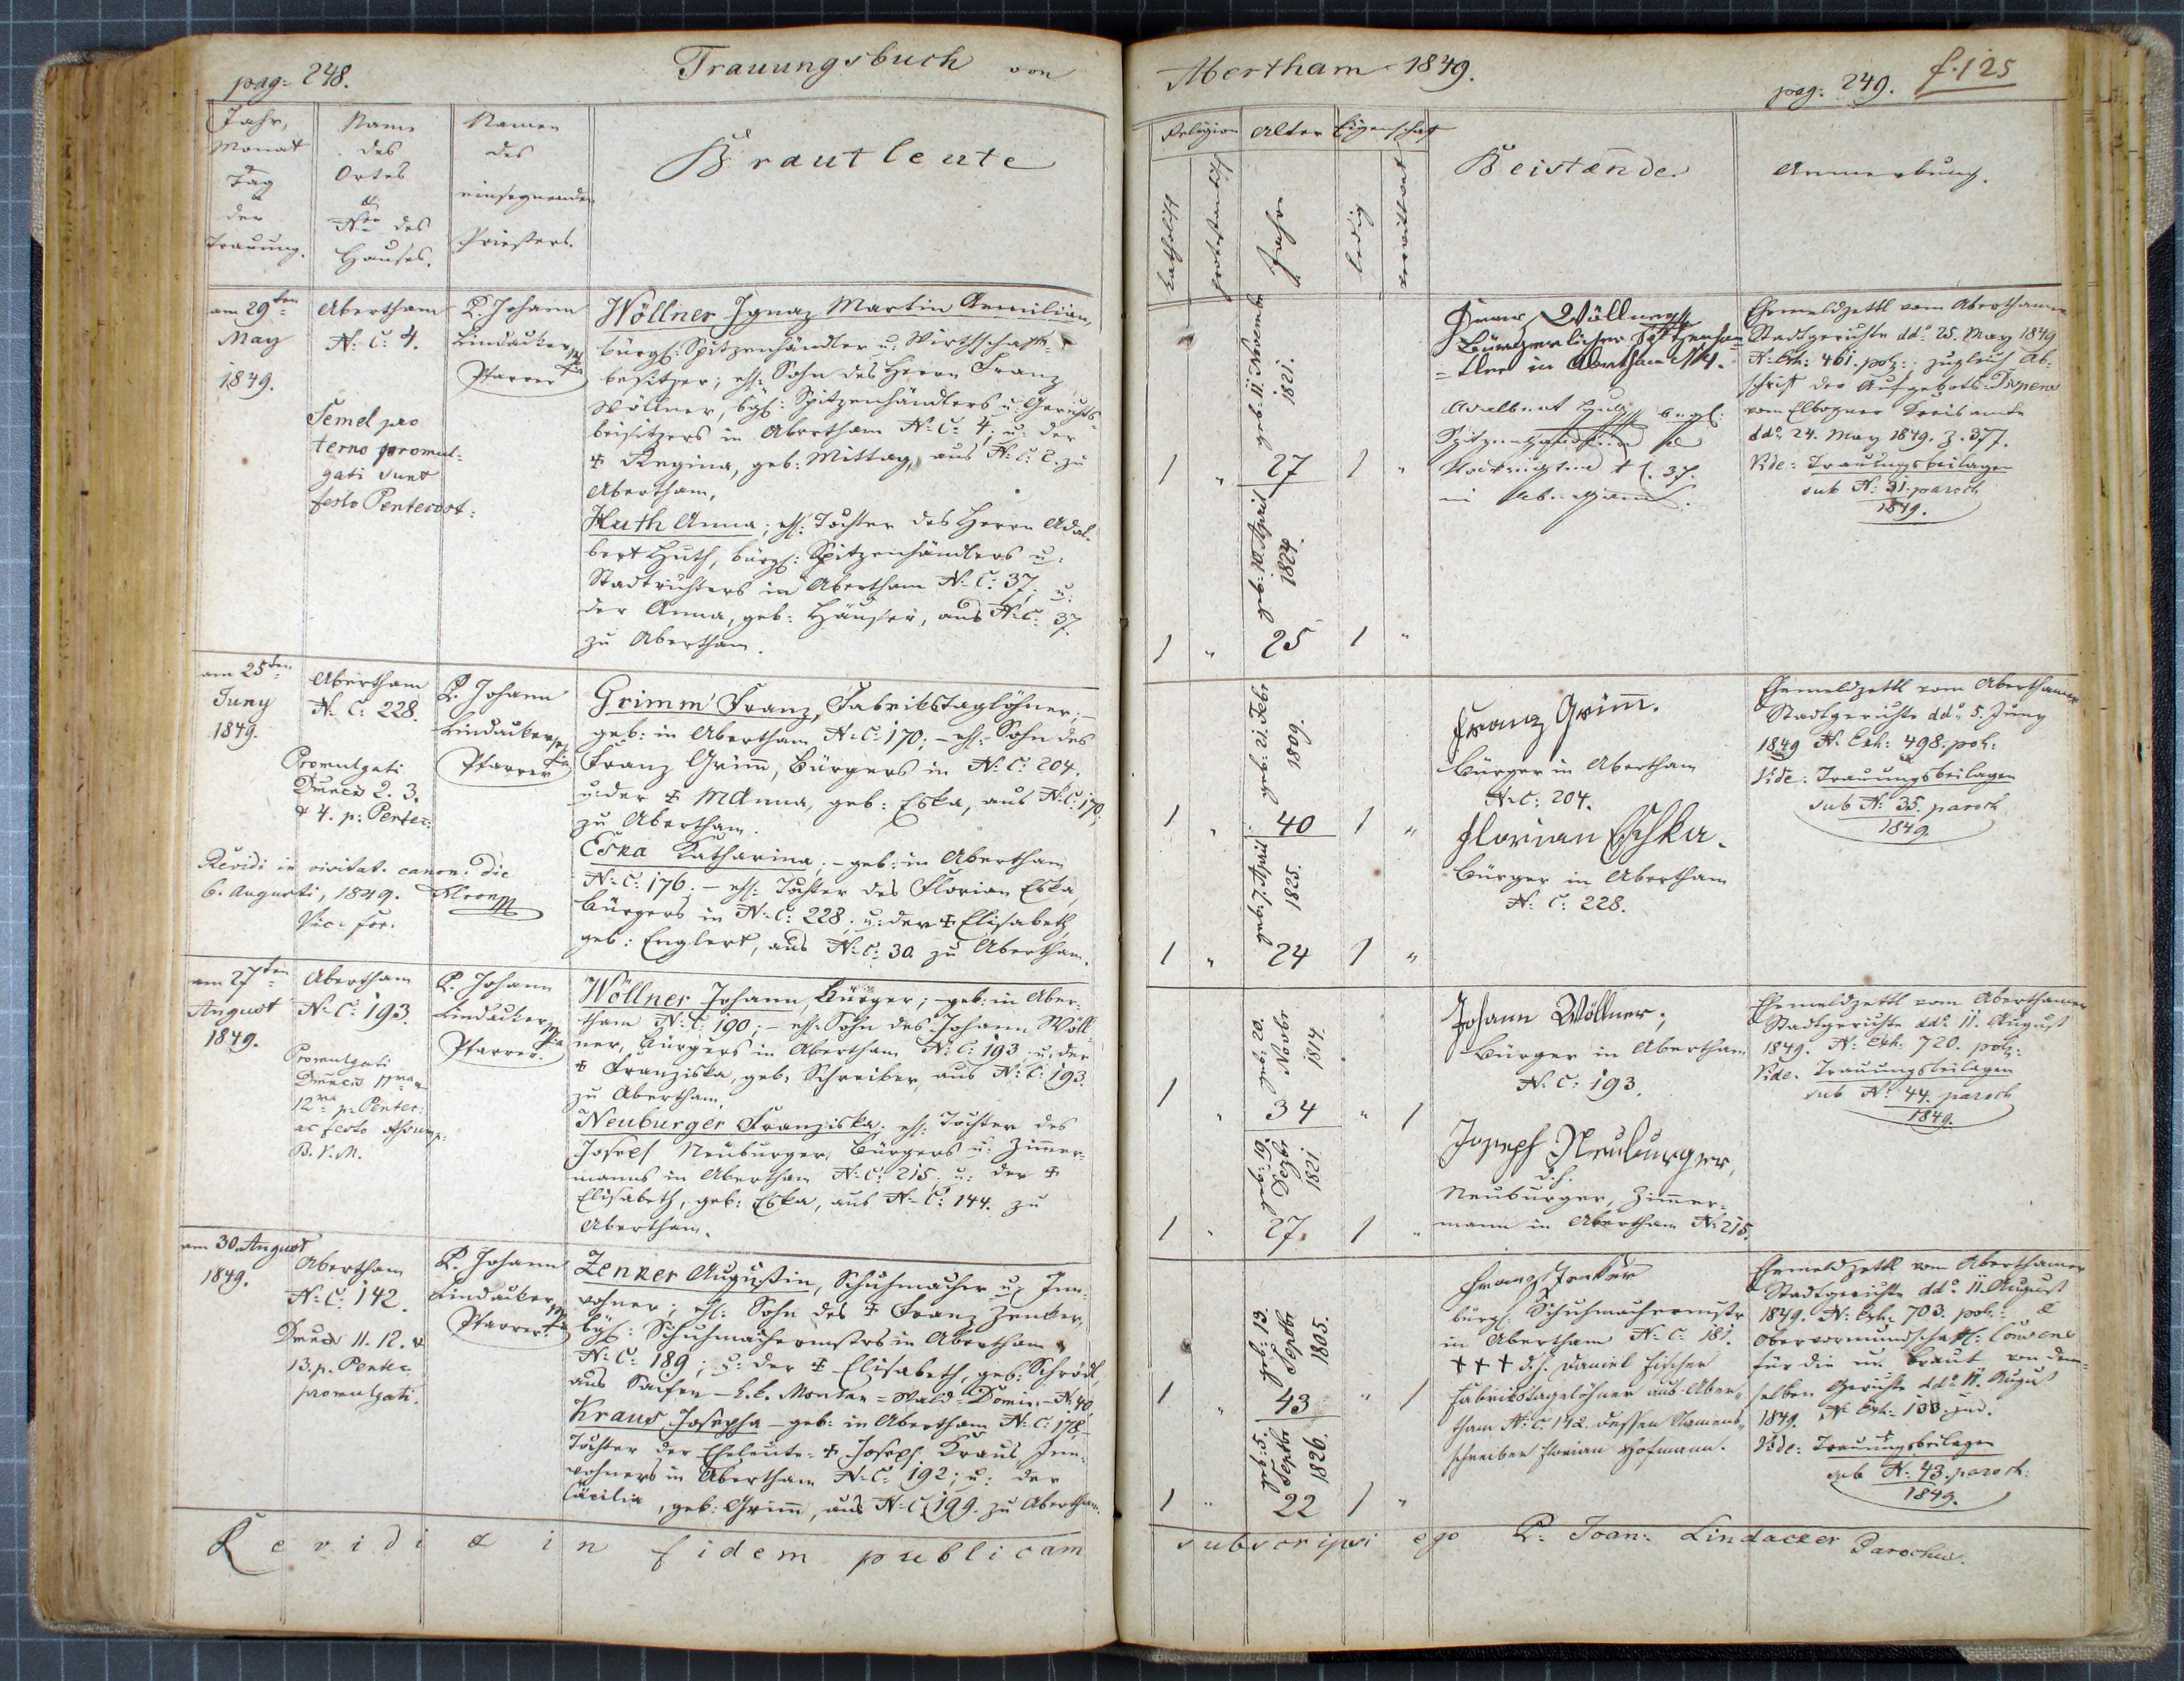 pag: 248.
Trauungsbuch von
Jahr,
Monat
Tag
der
Trauung.
Name
des
Ortes
&
Nro des
Hauses.
Namen
des
einsegnenden
Priesters.
Brautleute
am 29ten
May
1849.
Abertham
N. C. 4.
Semel pro
terno promul-
gati sunt
festo Pentecost:
P. Johann
Lindacker
Pfarrer
Wöllner Ignaz Martin Aemilian,
bürgl: Spitzenhändler u: Wirthschafts-
besitzer; ehl: Sohn des Herrn Franz
Wöllner, bgl: Spitzenhändlers u: Gerichts-
beisitzers in Abertham N. C. 4; u: der
‡ Regina, geb: Mittag, aus N. C. 2. zu
Abertham,
Huth Anna; ehl: Tochter des Herrn Adal-
bert Huth, bürgl: Spitzenhändlers u:
Stadtrichters in Abertham N. C. 37, u:
der Anna, geb: Häuser, aus N. C. 37.
zu Abertham.
am 25ten
Juny
1849.
Abertham
N. C: 228.
Promulgati
Dnīcis 2. 3.
& 4. p: Pentec:
P. Johann
Lindacker
Pfarrer
Revidi in visitat. canon: die
6. Augusti, 1849.
Vic. for.
Grimm Franz, Fabrikstaglöhner; –
geb: in Abertham N. C: 170; – ehl: Sohn des
Franz Grim̄, Bürgers in N. C: 204.
u: der ‡ MAnna, geb: Eska, aus N. C: 170,
zu Abertham.
Eska Katharina; – geb: in Abertham
N. C: 176; – ehl: Tochter des Florian Eska,
Bürgers in N. C: 228, u: der ‡ Elisabeth,
geb: Englert, aus N. C: 30. zu Abertham.
am 27ten
August
1849.
Abertham
N. C: 193.
Promulgati
Dnīcis 11ma
12ma p: Pentec:
ac festo Assump:
B. V. M.
P. Johann
Lindacker
Pfarrer.
Wöllner Johann, Bürger; – geb: in Aber-
tham N. C: 190; – ehl: Sohn des Johann Wöll-
ner, Bürgers in Abertham N. C: 193, u: der
‡ Franziska, geb: Schreiber, aus N. C: 193.
zu Abertham,
Neuburger Franziska, ehl: Tochter des
Joseph Neuburger, Bürgers u: Zim̄er-
manns in Abertham N. C: 215, u: der ‡
Elisabeth, geb: Eska, aus N. C: 144. zu
Abertham.
am 30. August
1849.
Abertham
N. C: 142.
Dnīcis 11. 12. &
13. p. Pentec.
promulgati.
P. Johann
Lindacker
Pfarrer.
Zenker Augustin, Schuhmacher u: Inn-
wohner; ehl: Sohn des ‡ Franz Zenker,
bgl: Schuhmachermstrs in Abertham
N. C: 189; u: der ‡ Elisabeth, geb: Schrödl
aus Saifen – k. k. Montan-Wald-Domin. – N. 40.
Kraus Josepha – geb: in Abertham N. C: 178, –
Tochter der Eheleute: ‡ Joseph Kraus Inn-
wohners in Abertham N. C: 192; u: der
Cäcilia, geb: Grim̄, aus N. C. 199. zu Abertham.
Revidi & in fidem publicam
Abertham 1849.
pag: 249.
f. 125
Religion
Alter
Eigenschaft
katholisch
protestantisch
Jahre
ledig
verwittwet
Beistände.
Anmerkung.
geb: 11. November
1821.
1 " 27 1 "
geb: 10. April
1824.
1 " 25 1 "
Franz Wöllner
Bürgerlicher Spitzenhän-
dler in Abertham N 4.
Adalbert Huth bürgl:
Spitzenhändler
N. C. 37.
in Abertham.
Ehemeldzettl vom Aberthamer
Stadtgerichte ddo 25. May 1849
N. Exh: 461. pol:; zugleich Ab-
schrift der Aufgebots-Dispens
vom Elbogner Kreisamte
ddo 24. May 1849. Z. 377.
Vide: Trauungsbeilagen
sub N: 31. paroch
1849.
geb: 21. Febr
1809.
1 " 40 1 "
geb: 7. April
1825.
1 " 24 1 "
Franz Grim̄.
Bürger in Abertham
N. C: 204.
Florian Eschka.
Bürger in Abertham
N. C: 228.
Ehemeldzettl vom Aberthamer
Stadtgerichte ddo 5. Juny
1849 N. Exh: 498. pol:
Vide: Trauungsbeilagen
sub N: 35. paroch
1849.
geb: 20.
Novbr
1814.
1 " 34 " 1
geb: 19.
Dezbr
1821
1 " 27. 1 "
Johann Wöllner;
Bürger in Abertham
N. C: 193.
Joseph Neuburger,
d. h.
Neuburger, Zim̄er-
mann in Abertham N. 215.
Ehemeldzettl vom Aberthamer
Stadtgerichte ddo 11. August
1849. N: Exh: 720. pol:
Vide. Trauungsbeilagen
sub N: 44. paroch
1849.
geb: 13.
Septbr
1805.
1 " 43 " 1
geb: 5.
Septbr
1826.
1 " 22 1 "
Franz Zenker
bürgl: Schuhmachermstr
in Abertham N. C: 181.
+++ d. h. Daniel Fischer
Fabrikstagelöhner aus Aber-
tham N. C. 142. dessen Namens-
schreiber Florian Hofmann.
Ehemeldzettl vom Aberthamer
Stadtgerichte ddo 11. August
1849. N: Exh: 703. pol: &
obervormundschaftl: Consens
für die m. Braut von dem-
selben Gerichte ddo 11. August
1849. N. Exh: 133. jud.
Vide: Trauungsbeilagen
sub N. 43. paroch:
1849.
subscripsi ego P. Joan: Lindacker Parochus.